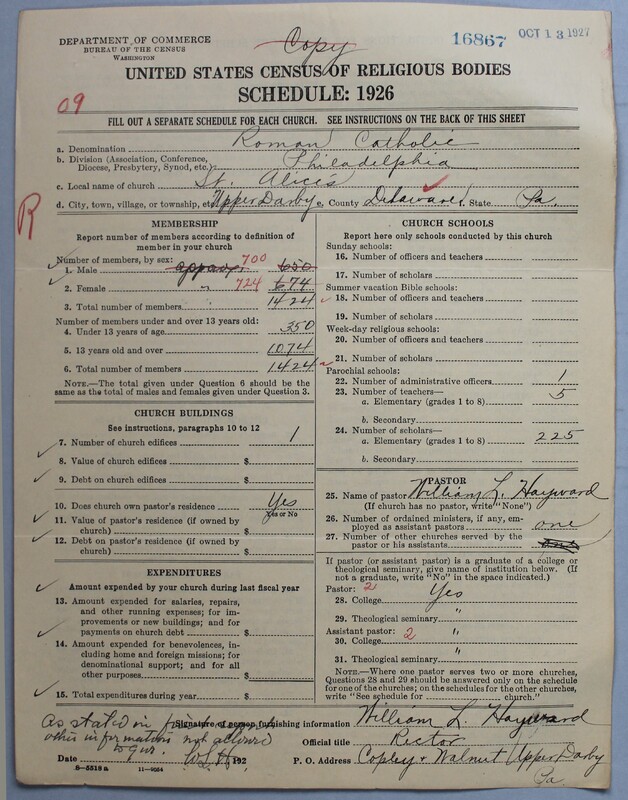 Copy
16867 OCT 13 1927
DEPARTMENT OF COMMERCE
BUREAU OF THE CENSUS
WASHINGTON
UNITED STATES CENSUS OF RELIGIOUS BODIES
SCHEDULE: 1926
09
FILL OUT A SEPARATE SCHEDULE FOR EACH CHURCH. SEE INSTRUCTIONS ON THE BACK OF THIS SHEET
a. Denomination Roman Catholic
b. Division (Association, Conference, Diocese, Presbytery, Synod, etc.) Philadelphia
c. Local name of church St. Alice's
d. City, town, village, or township, etc. Upper Darby e. County Delaware f. State Pa.
R
MEMBERSHIP
Report number of members according to definition of
member in your church
Number of members, by sex:
1. Male approx. 700 650
2. Female " 724 674
3. Total number of members 1424
Number of members under and over 13 years old:
4. Under 13 years of age 350
5. 13 years old and over 1074
6. Total number of members 1424
NOTE.—The total given under Question 6 should be
the same as the total of males and females given under Question 3.
CHURCH BUILDINGS
See instructions, paragraphs 10 to 12
7. Number of church edifices 1
8. Value of church edifices $
9. Debt on church edifices $
10. Does church own pastor's residence Yes
Yes or No
11. Value of pastor's residence (if owned by
church) $
12. Debt on pastor's residence (if owned by
church) $
EXPENDITURES
Amount expended by your church during last fiscal year
13. Amount expended for salaries, repairs,
and other running expenses; for im-
provements or new buildings; and for
payments on church debt $
14. Amount expended for benevolences, in-
cluding home and foreign missions; for
denominational support; and for all
other purposes $
15. Total expenditures during year $
CHURCH SCHOOLS
Report here only schools conducted by this church
Sunday schools:
16. Number of officers and teachers
17. Number of scholars
Summer vacation Bible schools:
18. Number of officers and teachers
19. Number of scholars
Week-day religious schools:
20. Number of officers and teachers
21. Number of scholars
Parochial schools:
22. Number of administrative officers 1
23. Number of teachers—
a. Elementary (grades 1 to 8) 5
b. Secondary
24. Number of scholars—
a. Elementary (grades 1 to 8) 225
b. Secondary
PASTOR
25. Name of pastor William L. Hayward
(If church has no pastor, write "None")
26. Number of ordained ministers, if any, em-
ployed as assistant pastors one
27. Number of other churches served by the
pastor or his assistants
If pastor (or assistant pastor) is a graduate of a college or
theological seminary, give name of institution below. (If
not a graduate, write "No" in the space indicated.)
Pastor: 2
28. College Yes
29. Theological seminary "
Assistant pastor: 2
30. College "
31. Theological seminary
NOTE.—Where one pastor serves two or more churches,
Questions 28 and 29 should be answered only on the schedule
for one of the churches; on the schedules for the other churches,
write "See schedule for church."
as stated in
other information not allowed
to give. W.L.H.
Signature of person furnishing information William L. Hayward
Official title Rector
Date 192 P. O. Address Copley & Walnut Upper Darby
Pa.
8-5518a 11-9054